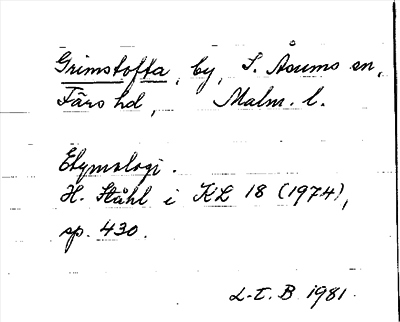 Grimstofta, by, S. Åsums sn,
Färs hd, Malm. l.
Etymologi.
H. Ståhl i KL 18 (1974),
sp. 430.
L-E. B 1981.